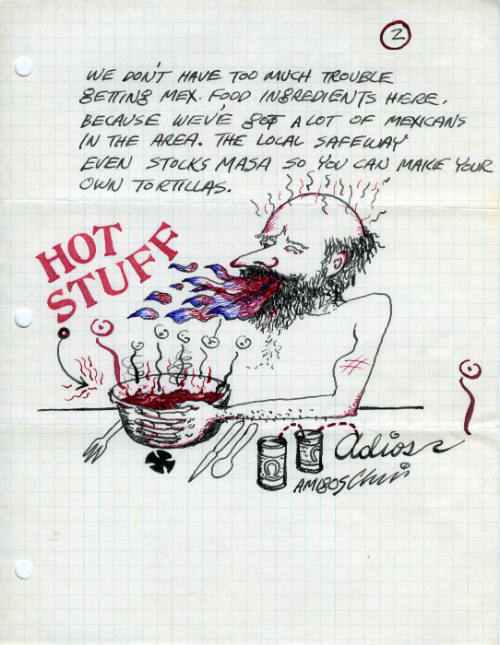 2
WE DON'T HAVE TOO MUCH TROUBLE
GETTING MEX. FOOD INGREDIENTS HERE.
BECAUSE WEV'E GOT A LOT OF MEXICANS
IN THE AREA. THE LOCAL SAFEWAY
EVEN STOCKS MASA SO YOU CAN MAKE YOUR
OWN TORTILLAS.
HOT
STUFF
Adios
AMIGOS Chris